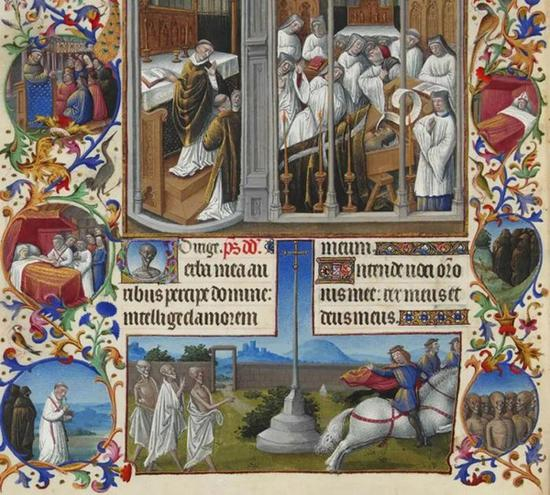 Dirige. ps. dd.
Verba mea au
ribus percipe domine:
intellige clamorem
meum.
Intende uoci oro
nis mee: rex meus et
deus meus.